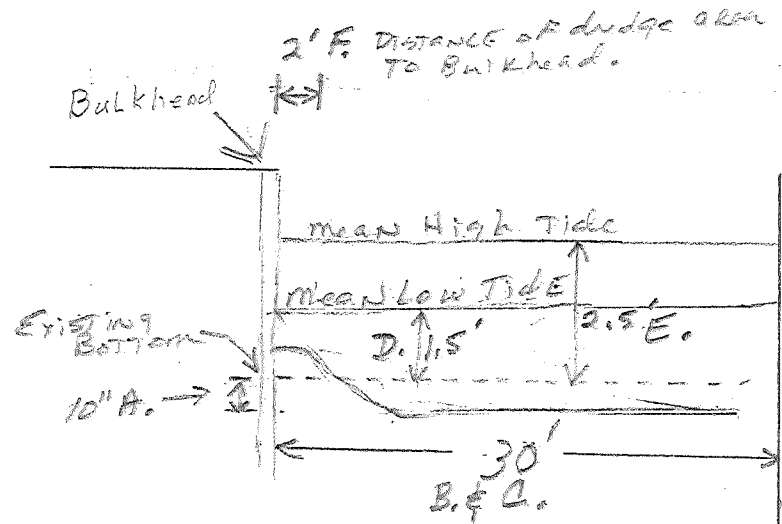 2' F. Distance of dredge area
To Bulkhead.
Bulkhead
mean High Tide
mean Low Tide
Existing
Bottom
D. 1.5'
2.5' E.
10" A.
30'
B. & C.